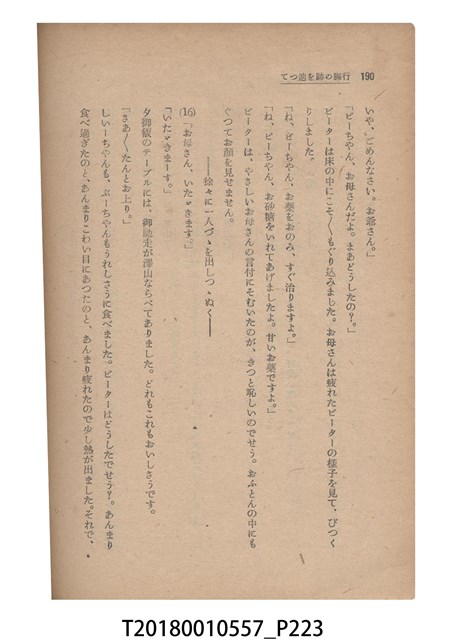 190 行脚の跡を追つて
いや、ごめんなさい。お爺さん。」
「ピーちやん、お母さんだよ。まあどうしたの？。」
ピーターは床の中にこそ〱もぐり込みました。お母さんは疲れたピーターの様子を見て、びつく
りしました。
「ね、ピーちやん、お薬をおのみ、すぐ治りますよ。」
「ね、ピーちやん、お砂糖をいれてあげましたよ。甘いお薬ですよ。」
ピーターは、やさしいお母さんの言付にそむいたのが、きつと恥しいのでせう。おふとんの中にも
ぐつてお顔を見せません。
――徐々に一人づゝを出しつゝぬく――
(16)「お母さん、いたゞきます。」
「いたゞきまーす。」
夕御飯のテーブルには、御馳走が澤山ならべてありました。どれもこれもおいしさうです。
「さあ〱たんとお上り。」
しいーちやんも、ぷーちやんもうれしさうに食べました。ピーターはどうしたでせう？。あんまり
食べ過ぎたのと、あんまりこわい目にあつたのと、あんまり疲れたので少し熱が出ました。それで、
T20180010557_P223